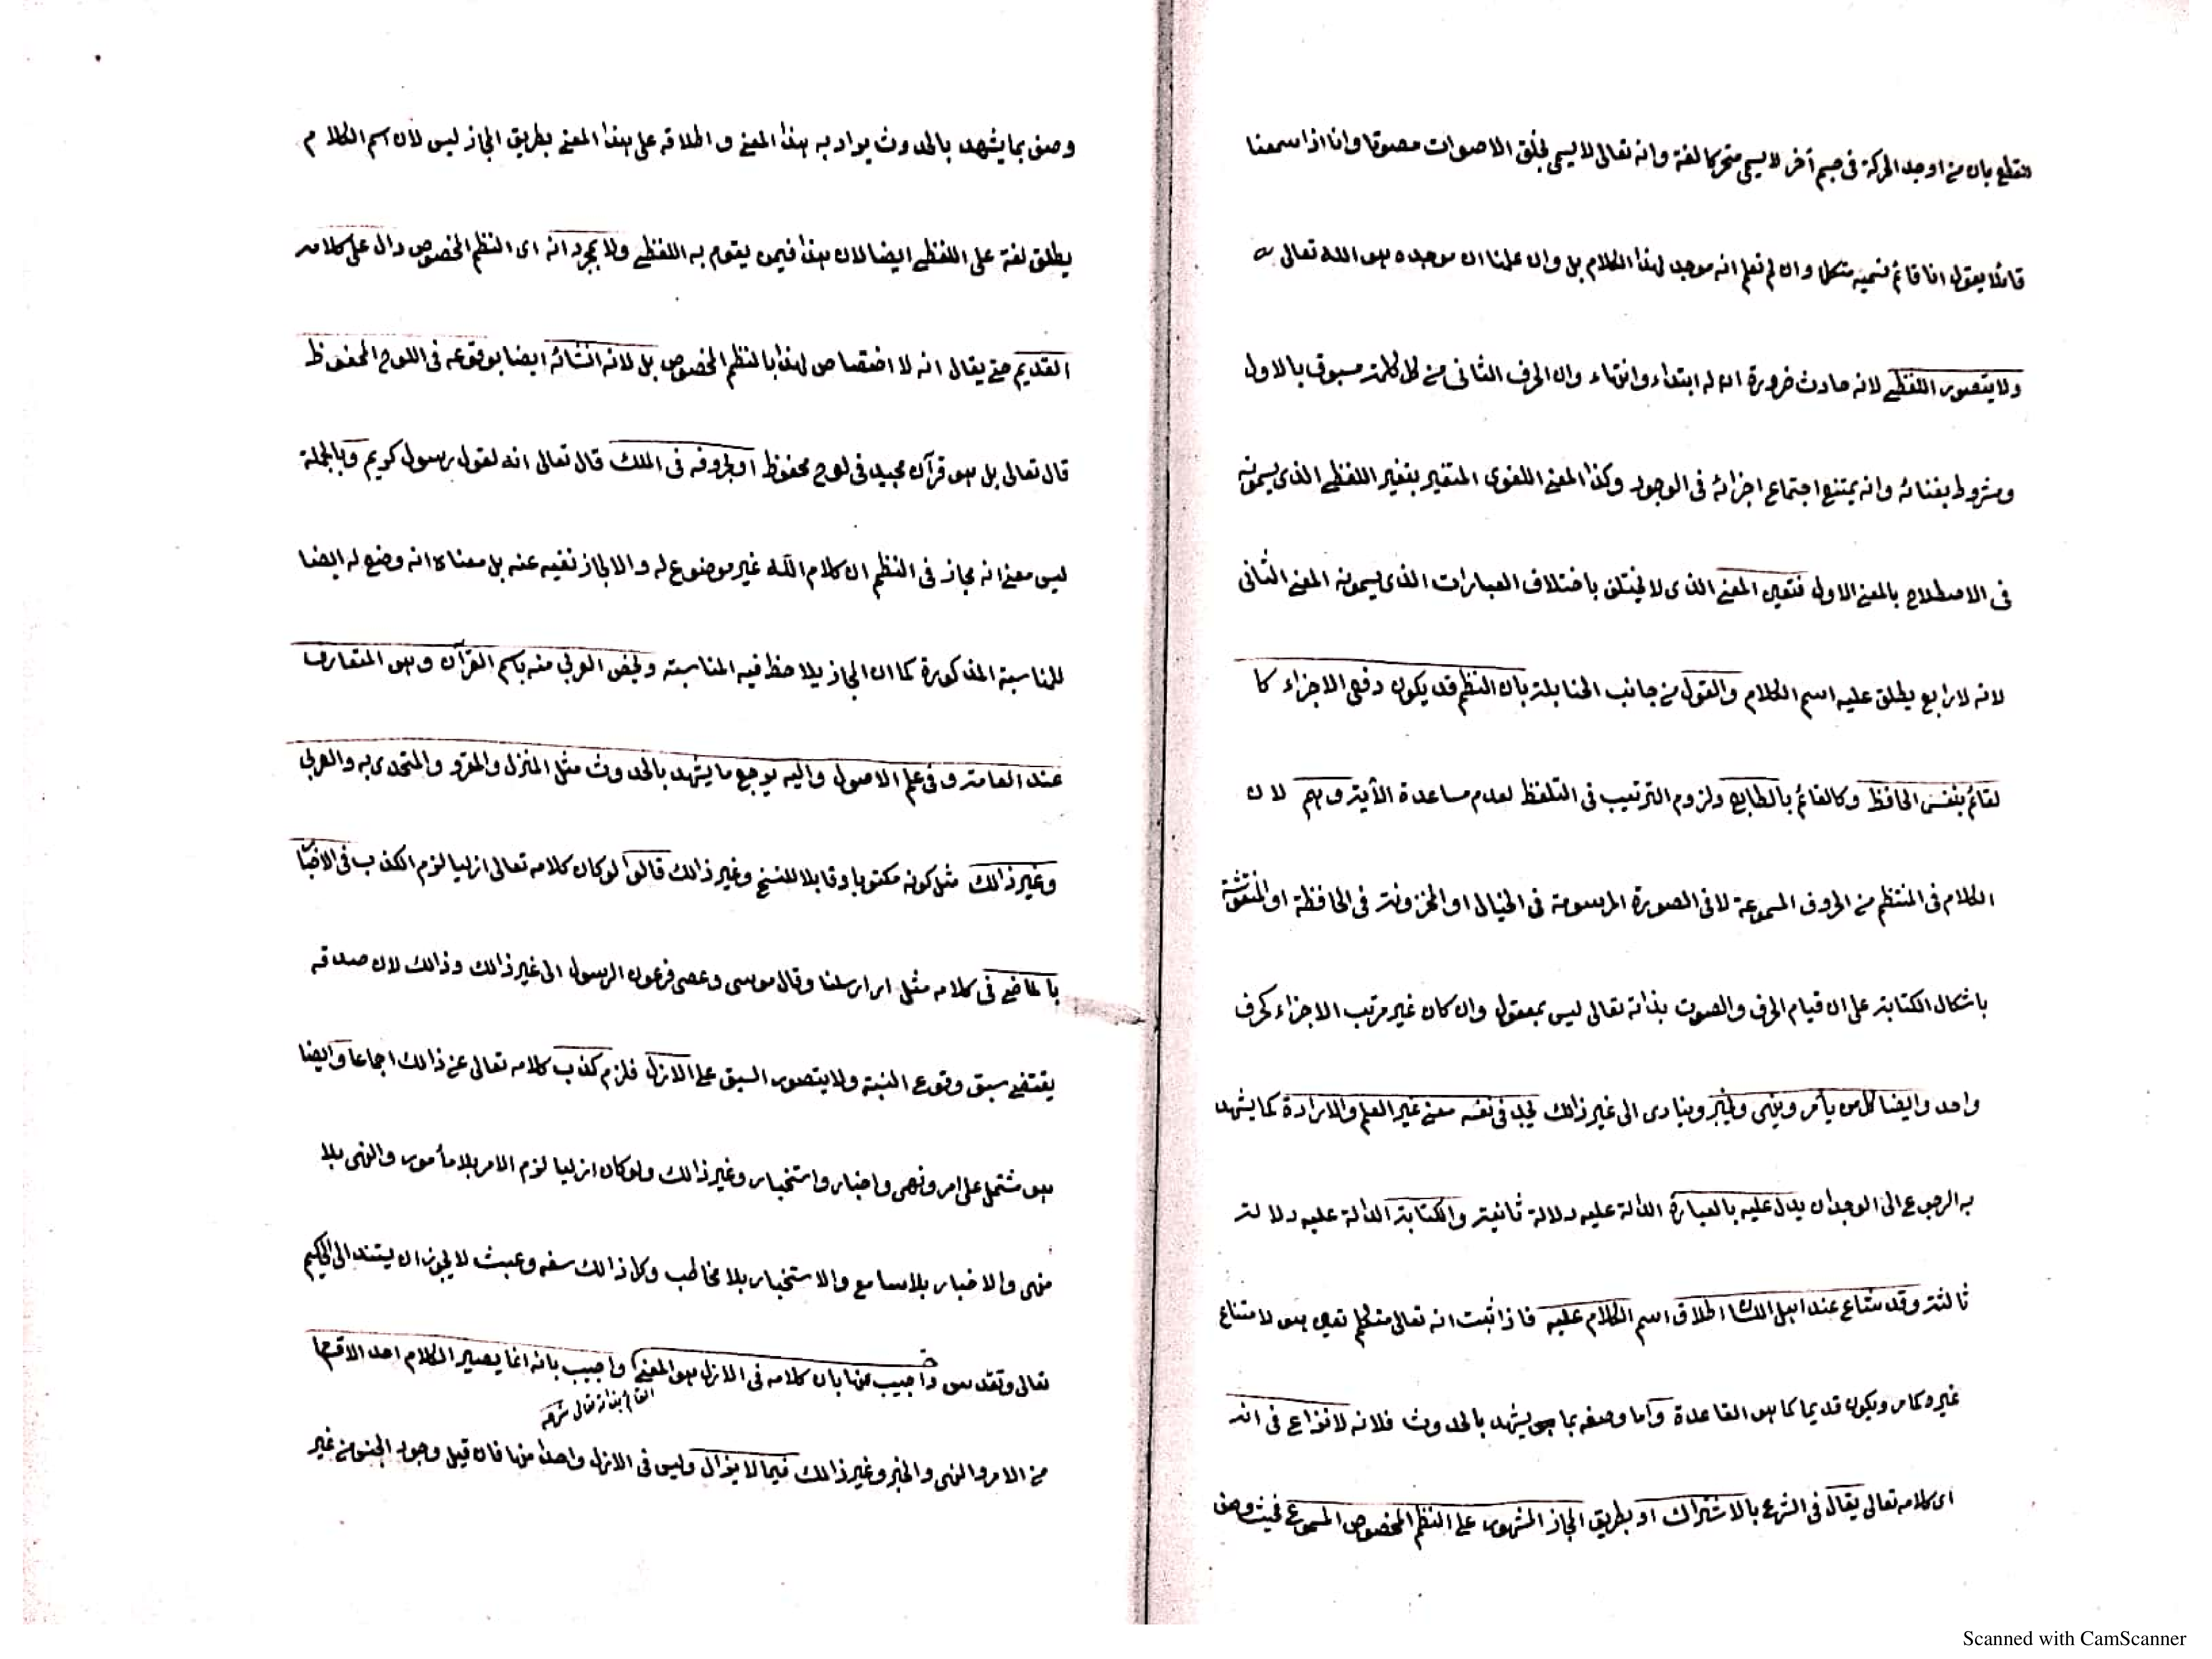 نقطع بان من اوجد الحركة فى جسم آخر لا يسمى متحركا لغة وانه تعالى لا يسمى بخلق الاصوات مصوتا وانا اذا سمعنا
قائلا يقول انا قائم نسميه متكلما وان لم نعلم انه موجد لهذا الكلام بل وان علمنا ان موجده هو الله تعالى
ولا يتصور اللفظے لانه حادث ضرورة ان له ابتداء وانتهاء وان الحرف الثانى من كل كلمة مسبوق بالاول
ومشروط بفنائه وانه يمتنع اجتماع اجزائه فى الوجود وكذا المعنے اللغوى المتغير بتغير اللفظے الذى يسمونه
فى الاصطلاح بالمعنے الاول فتعين المعنے الذى لا يختلف باختلاف العبارات الذى يسمونه المعنے الثانى
لانه لا رابع يطلق عليه اسم الكلام والقول من جانب الحنابلة بان النظم قد يكون دفعى الاجزاء كا
لقائم بنفس الحافظ وكالقائم بالطابع ولزوم الترتيب فى التلفظ لعدم مساعدة الآية وهم لان
الكلام فى المنتظم من الحروف المسموعة لا فى الصورة المرسومة فى الخيال او المخزونة فى الحافظة او المنقوشة
باشكال الكتابة على ان قيام الحرف والصوت بذاته تعالى ليس بمعقول وان كان غير مرتب الاجزاء كحرف
واحد وايضا كل من يأمر وينهى ويخبر وينادى الى غير ذالك يجد فى نفسه معنے غير العلم والارادة كما يشهد
به الرجوع الى الوجدان يدل عليه بالعبارة الدالة عليه دلالة ثانية والكتابة الدالة عليه دلالة
ثالثة وقد شاع عند اهل اللسان اطلاق اسم الكلام عليه فاذا ثبت انه تعالى متكلم تعين هو لامتناع
غيره كامر ويكون قديما كما هو القاعدة واما وصفه بما يشهد بالحدوث فلانه لا نزاع فى انه
اى كلامه تعالى يقال فى الشرع بالاشتراك او بطريق المجاز المشهور على النظم المخصوص المسموع فحيث وصف
وصف بما يشهد بالحدوث يراد به هذا المعنے و اطلاقه على هذا المعنے بطريق المجاز ليس لان اسم الكلام
يطلق لغة على اللفظے ايضا لان هذا فيمن يقوم به اللفظے ولا بمجرد انه اى النظم المخصوص دال على كلامه
القديم حتے يقال انه لا اختصاص لهذا بالنظم المخصوص بل لانه انشائه ايضا بوقوعه فى اللوح المحفوظ
قال تعالى بل هو قرآن مجيد فى لوح محفوظ او بحروفه فى الملك قال تعالى انه لقول رسول كريم وبالجملة
ليس معنے انه مجاز فى النظم ان كلام الله غير موضوع له والا لجاز نفيه عنه بل معناه انه وضع له ايضا
للمناسبة المذكورة كما ان المجاز يلاحظ فيه المناسبة ويخص العربى منه باسم القرآن وهو المتعارف
عند العامة وفى علم الاصول واليه يرجع ما يشهد بالحدوث مثل المنزل والمقرو والمتحدى به والعربى
وغير ذالك مثل كونه مكتوبا وقابلا للنسخ وغير ذالك قالوا لو كان كلامه تعالى ازليا لزم الكذب فى الاخبار
بالماضے فى كلامه مثل انا ارسلنا وقال موسى وعصى فرعون الرسول الى غير ذالك وذالك لان صدقه
يقتضے سبق وقوع النسبة ولا يتصور السبق على الازل فلزم كذب كلامه تعالى عن ذالك اجماعا وايضا
هو مشتمل على امر ونهى واخبار واستخبار وغير ذالك ولو كان ازليا لزم الامر بلا مأمور والنهى بلا
منهى والاخبار بلا سامع والاستخبار بلا مخاطب وكل ذالك سفه وعبث لا يجوز ان يستند الى الحكيم
تعالى وتقدس واجيب عنها بان كلامه فى الازل هو المعنے واجيب بانه انما يصير الكلام احد الاقسام
القائم بذاته تعالى
من الامر والنهى والخبر وغير ذالك فيما لا يزال وليس فى الازل واحدا منها فان قيل وجود الجنس من غير
Scanned with CamScanner